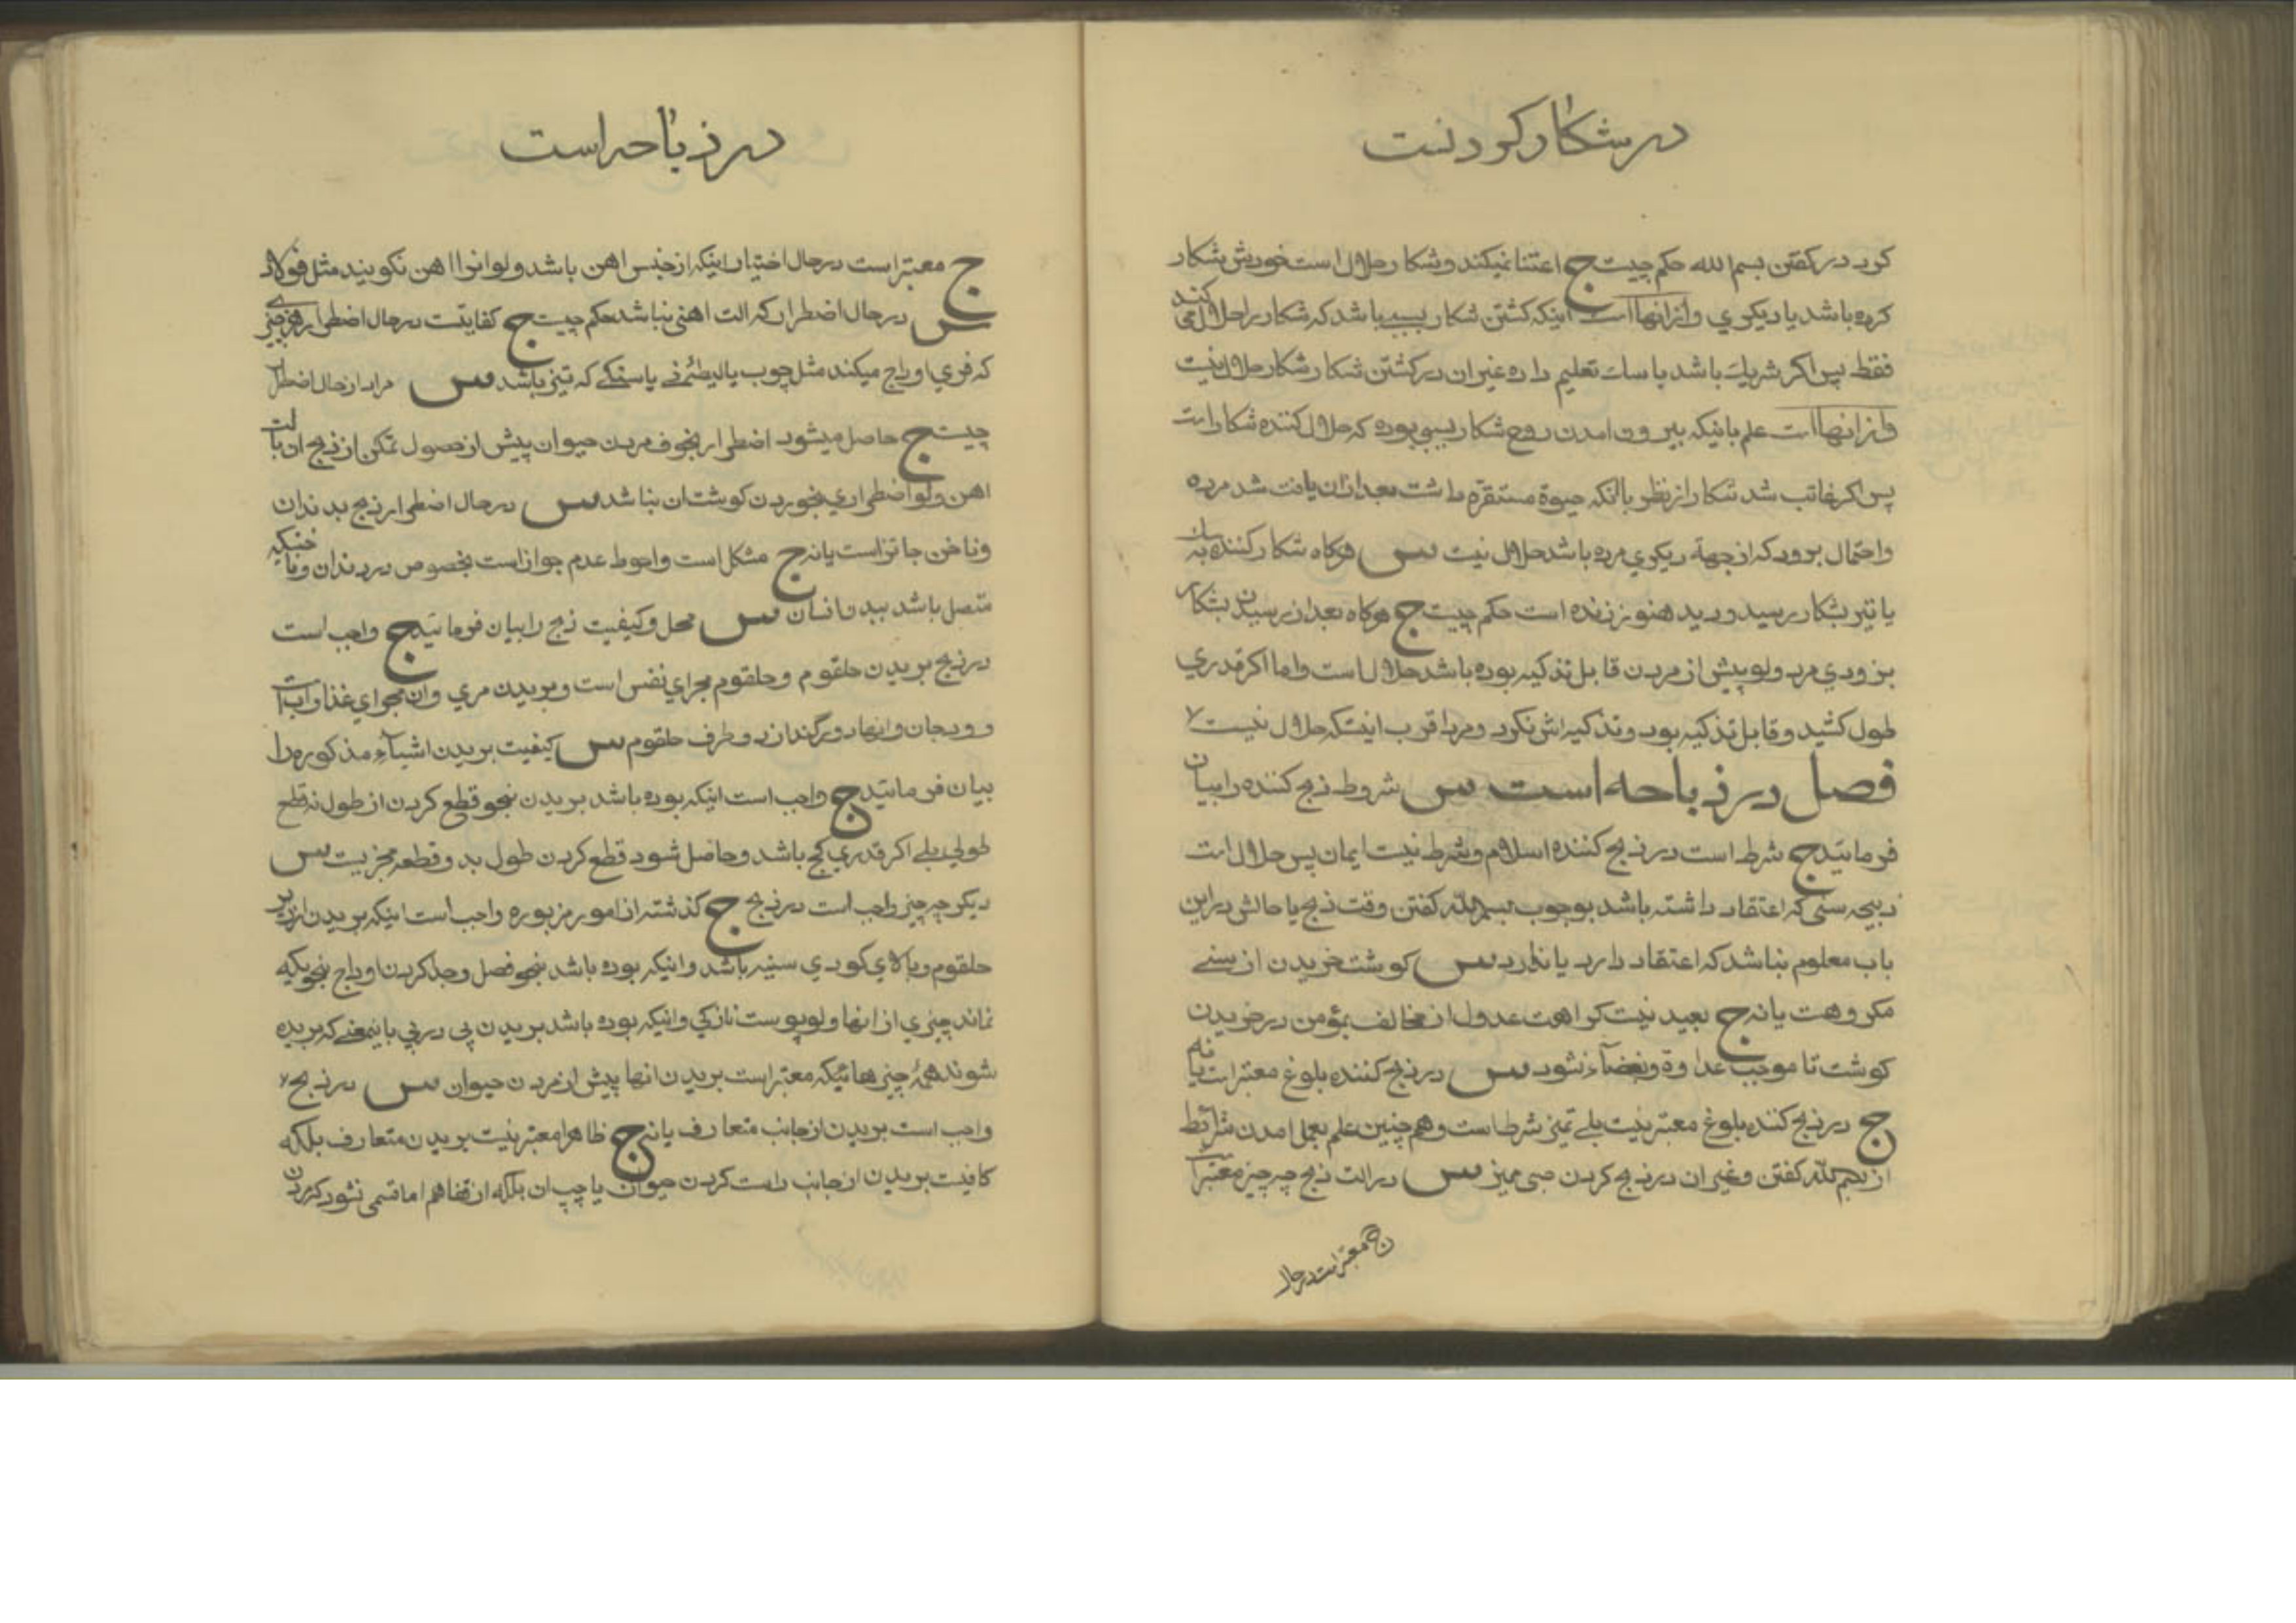 در شکار کردنست
کرد در کفتن بسم الله حکم چیست ج اعتنا نمیکند و شکار حلال است خودش شکار
کرده باشد یا دیکری و از انهااست اینکه کشتن شکار بسبب باشد که شکار را حلال می کند
فقط پس اکر شریک باشد با سک تعلیم داده غیر ان در کشتن شکار شکار حلال نیست
و از انهااست علم باینکه بیرون امدن روح شکار بسببی بوده که حلال کننده شکار است
پس اکر غائب شد شکار از نظر بااینکه حیوة مستقره داشت بعد از ان یافت شد مرده
و احتمال برود که از جهة دیکری مرده باشد حلال نیست س هرکاه شکار کننده به سک
یا تیر بشکار رسید و دید هنوز زنده است حکم چیست ج هرکاه بعد از رسیدن بشکار
بزودی مرد ولو پیش از مردن قابل تذکیه بوده باشد حلال است و اما اکر قدری
طول کشید و قابل تذکیه بود و تذکیه اش نکرد و مرد اقرب اینستکه حلال نیست
فصل در ذباحه است س شروط ذبح کننده را بیان
فرمائید ج شرط است در ذبح کننده اسلام و شرط نیست ایمان پس حلال است
ذبیحه سنی که اعتقاد داشته باشد بوجوب بسم الله کفتن وقت ذبح یا حالش در این
باب معلوم نباشد که اعتقاد دارد یا ندارد س کوشت خریدن از سنی
مکروهست یا نه ج بعید نیست کراهت عدول از مخالف بمؤمن در خریدن
کوشت تا موجب عداوة و بغضآء نشود س در ذبح کننده بلوغ معتبر است یا نه
ج در ذبح کننده بلوغ معتبر نیست بلی تمیز شرط است و هم چنین علم بعمل امدن شرائط
از بسم الله کفتن و غیر ان در ذبح کردن صبی ممیز س در الت ذبح چه چیز معتبر است
ج معتبر است در حال
در ذباحه است
ج معتبر است در حال اختیار اینکه از جنس اهن باشد ولو انرا اهن نکویند مثل فولاد
س در حال اضطرار که الت اهنی نباشد حکم چیست ج کفایتست در حال اضطرار هر چیزی
که فری اوداج میکند مثل چوب یا لیطئه نی یا سنکی که تیز باشد س مراد از حال اضطرار
چیست ج حاصل میشود اضطرار بخوف مردن حیوان پیش از حصول تمکن از ذبح ان با الت
اهن ولو اضطراری بخوردن کوشت ان نباشد س در حال اضطرار ذبح بدندان
و ناخن جائز است یا نه ج مشکل است و احوط عدم جواز است بخصوص در دندان و ناخنیکه
متصل باشد ببدن انسان س محل و کیفیت ذبح را بیان فرمائید ج واجب است
در ذبح بریدن حلقوم و حلقوم مجرای نفس است و بریدن مری و ان مجرای غذا و اب است
و ودجان و انها دو رگند از دو طرف حلقوم س کیفیت بریدن اشیآء مذکوره را
بیان فرمائید ج واجب است اینکه بوده باشد بریدن بنحو قطع کردن از طول نه قطع
طولی بلی اکر قدری کج باشد و حاصل شود قطع کردن طول بدو قطعه مجزیست س
دیکر چه چیز واجب است در ذبح ج کذشته از امور مزبوره واجب است اینکه بریدن از زیر
حلقوم و بالای کودی سینه باشد و اینکه بوده باشد بنحو فصل و جدا کردن اوداج بنحویکه
نماند چیزی از انها ولو پوست نازکی و اینکه بوده باشد بریدن پی در پی باینمعنی که بریده
شوند همۀ چیزهائیکه معتبر است بریدن انها پیش از مردن حیوان س در ذبح
واجب است بریدن از جانب متعارف یا نه ج ظاهرا معتبر نیست بریدن متعارف بلکه
کافیست بریدن از جانب راست کردن حیوان یا چپ ان بلکه از قفا هم اما قسمی نشود که مردن